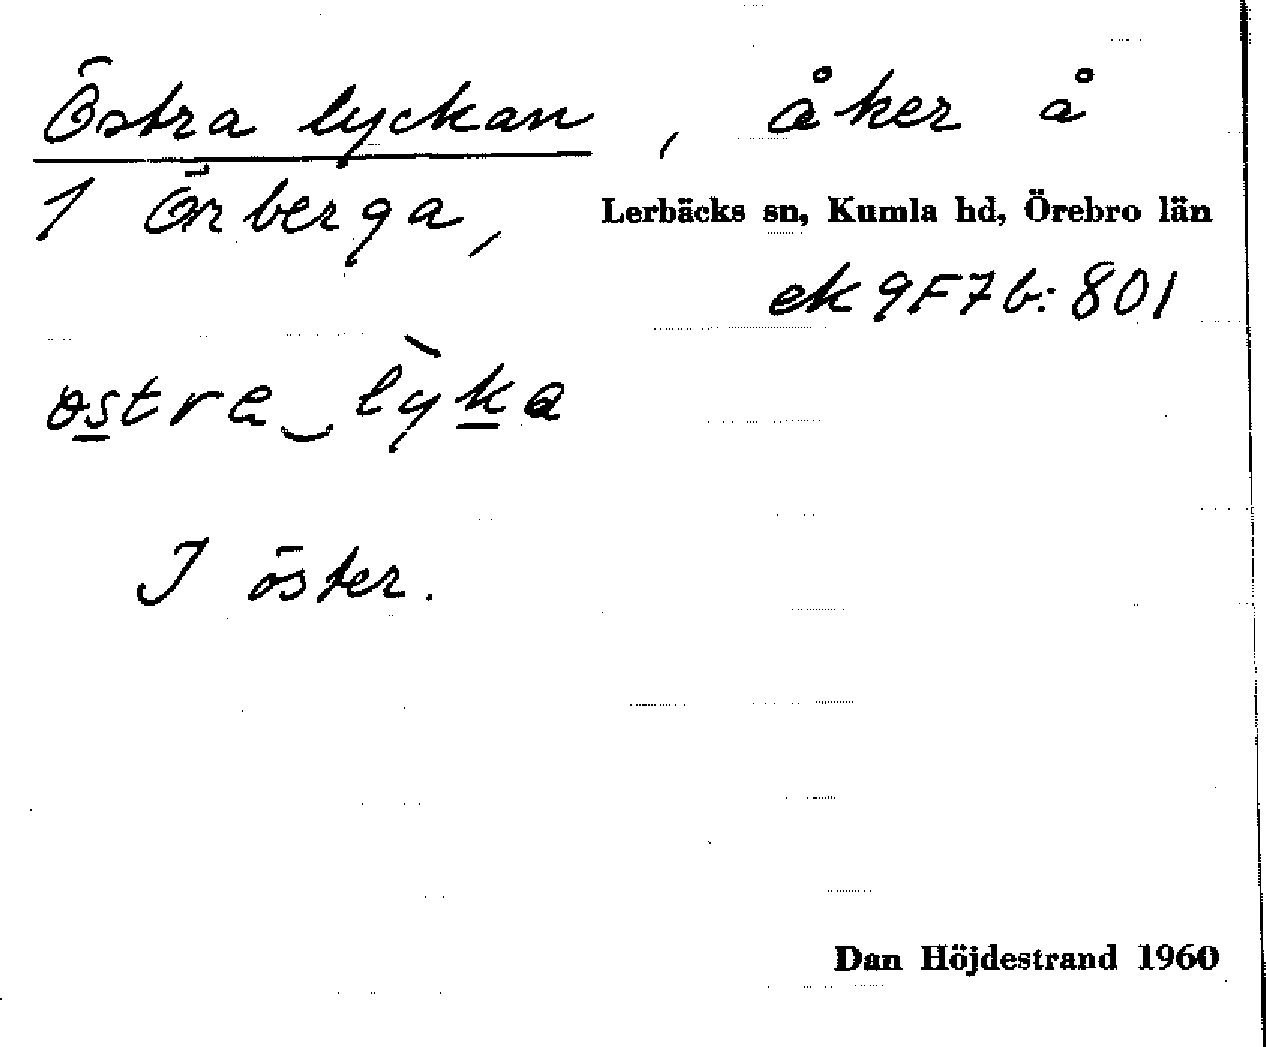 Östra lyckan, åker å
1 Örberga, Lerbäcks sn, Kumla hd, Örebro län
ek 9F7b:801
östra‿lỳka
I öster.
Dan Höjdestrand 1960